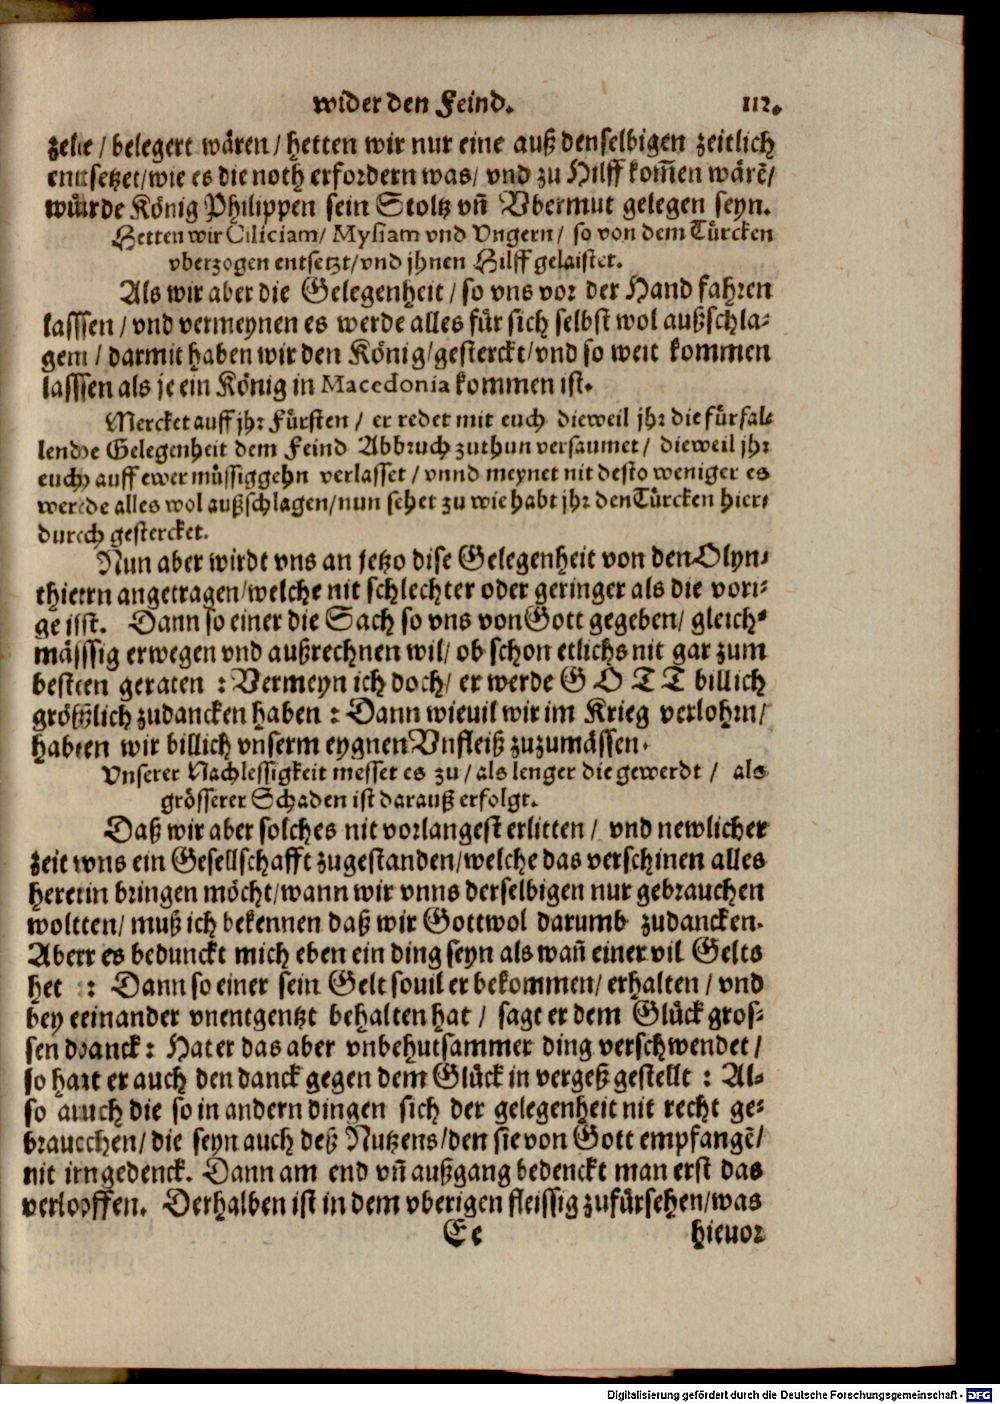 wider den Feind. 112.
zehe / belegert wären / hetten wir nur eine auß denselbigen zeitlich
entsetzet / wie es die noth erfordern was / vnd zu Hilff kom̃en wärẽ /
würde König Philippen sein Stoltz vñ Vbermut gelegen seyn.
Hetten wir Ciliciam / Mysiam vnd Vngern / so von dem Türcken
vberzogen entsetzt / vnd jhnen Hilff gelaistet.
Als wir aber die Gelegenheit / so vns vor der Hand fahren
lassen / vnd vermeynen es werde alles für sich selbst wol außschla-
gen / darmit haben wir den König / gesterckt / vnd so weit kommen
lassen als je ein König in Macedonia kommen ist.
Mercket auff jhr Fürsten / er redet mit euch dieweil jhr die fürfal-
lende Gelegenheit dem Feind Abbruch zuthun versaumet / dieweil jhr
euch auff ewer müssiggehn verlasset / vnnd meynet nit desto weniger es
werde alles wol außschlagen / nun sehet zu wie habt jhr den Türcken hier-
durch gestercket.
Nun aber wirdt vns an jetzo dise Gelegenheit von den Olyn-
thiern angetragen / welche nit schlechter oder geringer als die vori-
ge ist. Dann so einer die Sach so vns von Gott gegeben / gleich-
mässig erwegen vnd außrechnen wil / ob schon etlichs nit gar zum
besten geraten : Vermeyn ich doch / er werde GOTT billich
größlich zudancken haben : Dann wieuil wir im Krieg verlohrn /
haben wir billich vnserm eygnen Vnfleiß zuzumässen.
Vnserer Nachlessigkeit messet es zu / als lenger die gewerdt / als
grösserer Schaden ist darauß erfolgt.
Daß wir aber solches nit vorlangest erlitten / vnd newlicher
zeit vns ein Gesellschafft zugestanden / welche das verschinen alles
herein bringen möcht / wann wir vnns derselbigen nur gebrauchen
wolten / muß ich bekennen daß wir Gott wol darumb zudancken.
Aber es bedunckt mich eben ein ding seyn als wañ einer vil Gelts
het : Dann so einer sein Gelt souil er bekommen / erhalten / vnd
bey einander vnentgentzt behalten hat / sagt er dem Glück gros-
sen danck : Hat er das aber vnbehutsammer ding verschwendet /
so hat er auch den danck gegen dem Glück in vergeß gestellt : Al-
so auch die so in andern dingen sich der gelegenheit nit recht ge-
brauchen / die seyn auch deß Nutzens / den sie von Gott empfangẽ /
nit ingedenck. Dann am end vñ außgang bedenckt man erst das
verloffen. Derhalben ist in dem vberigen fleissig zufürsehen / was
Ee hieuor
Digitalisierung gefördert durch die Deutsche Forschungsgemeinschaft - DFG